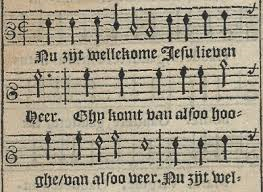 Nu zijt wellekome Jesu lieven
Heer. Ghy komt van alsoo hoo-
ghe/van alsoo veer. Nu zijt wel-